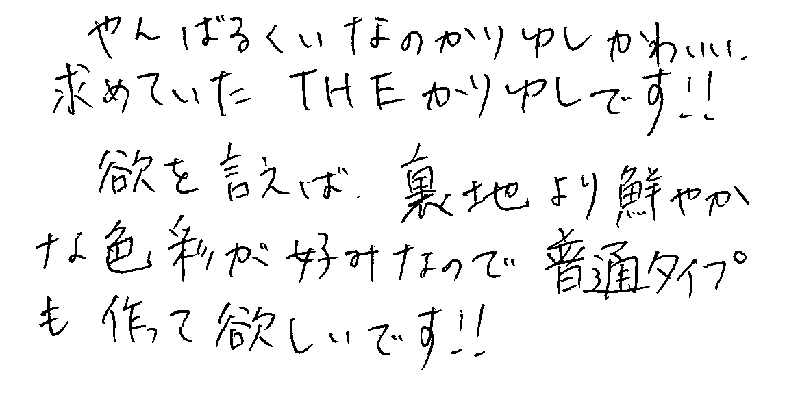 やんばるくいなのかりゆしかわいい.
求めていた THE かりゆしです!!
欲を言えば. 裏地より鮮やか
な色彩が好みなので普通タイプ
も作って欲しいです!!